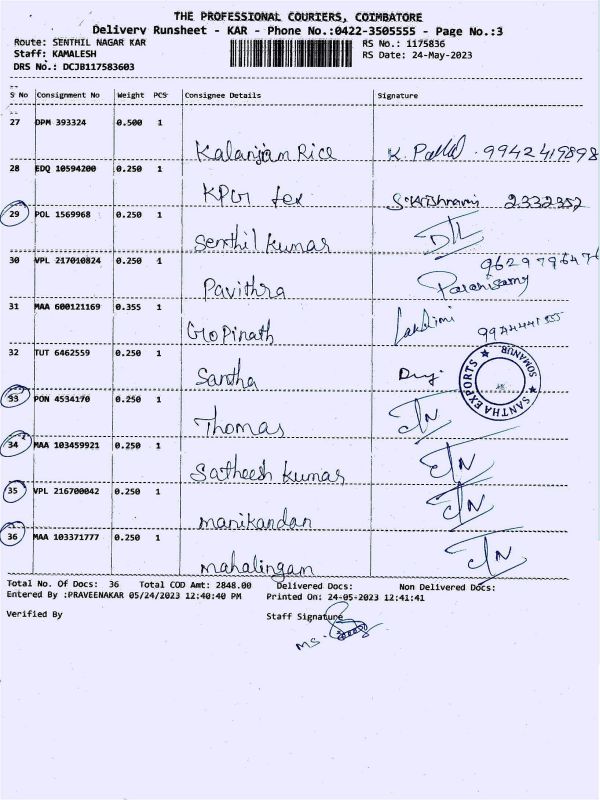 THE PROFESSIONAL COURIERS, COIMBATORE
Delivery Runsheet - KAR - Phone No.:0422-3505555 - Page No.:3
Route: SENTHIL NAGAR KAR RS No.: 1175836
Staff: KAMALESH RS Date: 24-May-2023
DRS No.: DCJB117583603
S No Consignment No Weight PCS Consignee Details Signature
27 DPM 393324 0.500 1
Kalanjiam Rice K. 9942419898
28 EDQ 10594200 0.250 1
KPG tex 2332352
29 POL 1569968 0.250 1
Senthil kumar D/L
30 VPL 217010824 0.250 1
Pavithra Paranisamy
31 MAA 600121169 0.355 1
Gopinath Lakshmi
32 TUT 6462559 0.250 1
Santha
SANTHA EXPORTS ★ SOMANUR ★
33 PON 4534170 0.250 1
Thomas I/N
34 MAA 103459921 0.250 1
Satheesh kumar I/N
35 VPL 216700042 0.250 1
manikandan I/N
36 MAA 103371777 0.250 1
mahalingam I/N
Total No. Of Docs: 36 Total COD Amt: 2848.00 Delivered Docs: Non Delivered Docs:
Entered By :PRAVEENAKAR 05/24/2023 12:40:40 PM Printed On: 24-05-2023 12:41:41
Verified By Staff Signature
MS.